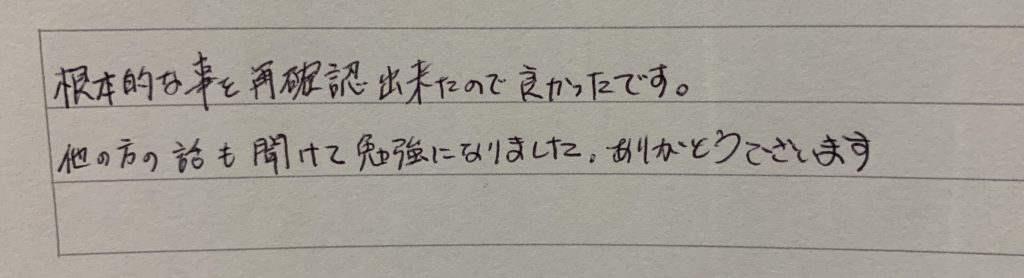 根本的な事を再確認出来たので良かったです。
他の方の話も聞けて勉強になりました。ありがとうございます